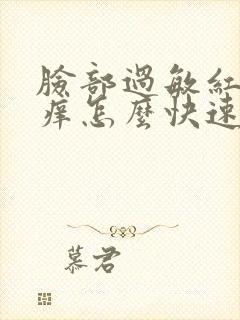 臉部過敏紅
痒怎麼快速
慕君